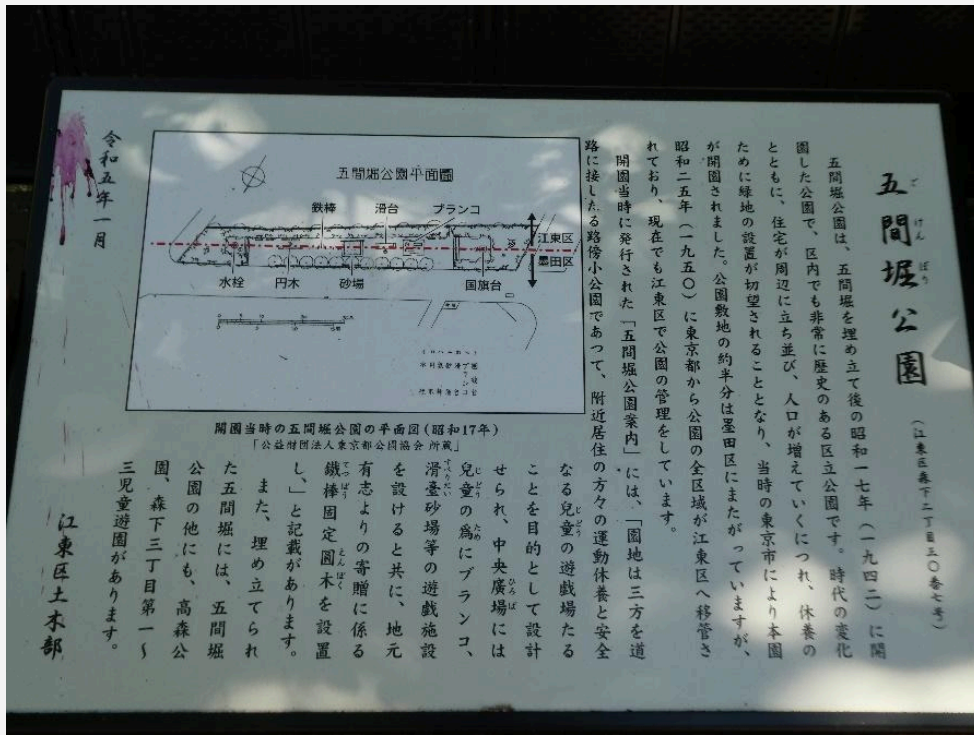 五間堀公園
ご けん ぼり
(江東区森下二丁目三〇番七号)
五間堀公園は、五間堀を埋め立て後の昭和一七年(一九四二)に開
園した公園で、区内でも非常に歴史のある区立公園です。時代の変化
とともに、住宅が周辺に立ち並び、人口が増えていくにつれ、休養の
ために緑地の設置が切望されることとなり、当時の東京市により本園
が開園されました。公園敷地の約半分は墨田区にまたがっていますが、
昭和二五年(一九五〇)に東京都から公園の全区域が江東区へ移管さ
れており、現在でも江東区で公園の管理をしています。
開園当時に発行された「五間堀公園案内」には、「園地は三方を道
路に接したる路傍小公園であつて、附近居住の方々の運動休養と安全
なる児童の遊戯場たる
じどう
ことを目的として設計
せられ、中央廣場には
ひろば
兒童の爲にブランコ、
じどう ため
滑臺砂場等の遊戯施設
すべりだい
を設けると共に、地元
有志よりの寄贈に係る
鐵棒固定圓木を設置
てつぼう えんぼく
し、」と記載があります。
また、埋め立てられ
た五間堀には、五間堀
公園の他にも、高森公
園、森下三丁目第一~
三児童遊園があります。
五間堀公園平面圖
鉄棒 滑台 ブランコ
江東区
墨田区
水栓 円木 砂場 国旗台
開園当時の五間堀公園の平面図(昭和17年)
「公益財団法人東京都公園協会 所蔵」
令和五年一月
江東区土木部